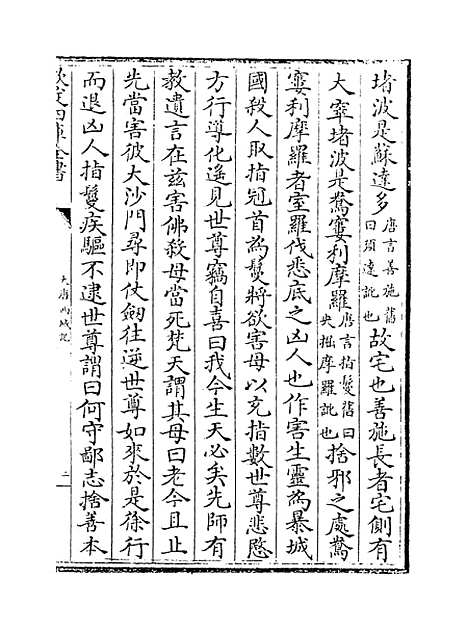 堵波是蘇達多唐言善施舊曰須達訛也故宅也善施長者宅側有
大窣堵波是鴦窶利摩羅唐言指鬘舊曰央掘摩羅訛也捨邪之處鴦
窶利摩羅者室羅伐悉底之凶人也作害生靈為暴城
國殺人取指冠首為鬘將欲害母以充指數世尊悲愍
方行導化遙見世尊竊自喜曰我今生天必矣先師有
教遺言在茲害佛殺母當死梵天謂其母曰老今且止
先當害彼大沙門尋即仗劒往逆世尊如來於是徐行
而退凶人指鬘疾驅不逮世尊謂曰何守鄙志捨善本
欽定四庫全書
大唐西域記
二